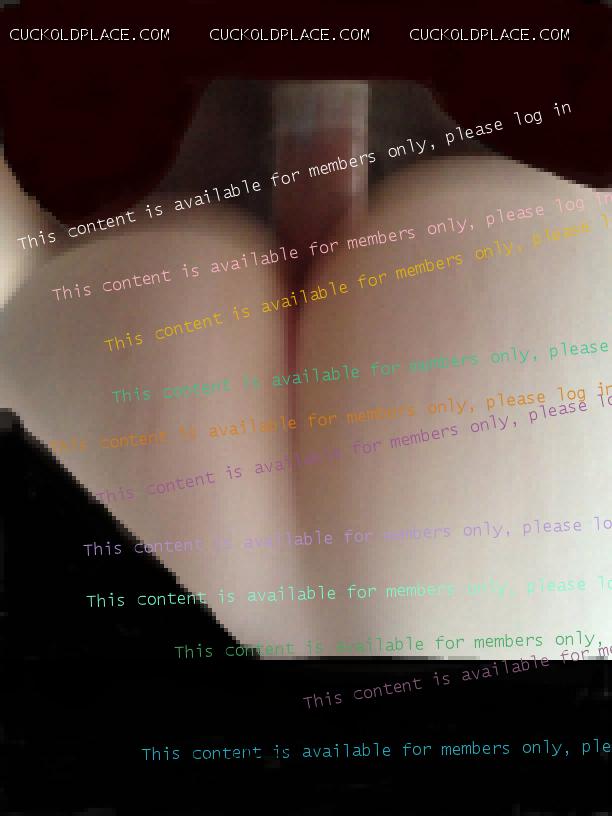 CUCKOLDPLACE.COM CUCKOLDPLACE.COM CUCKOLDPLACE.COM
This content is available for members only, please log in
This content is available for members only, please log in
This content is available for members only, please
This content is available for members only, please
This content is available for members only, please log in
This content is available for members only, please
This content is available for members only, please
This content is available for members only, please
This content is available for members only,
This content is available for
This content is available for members only,